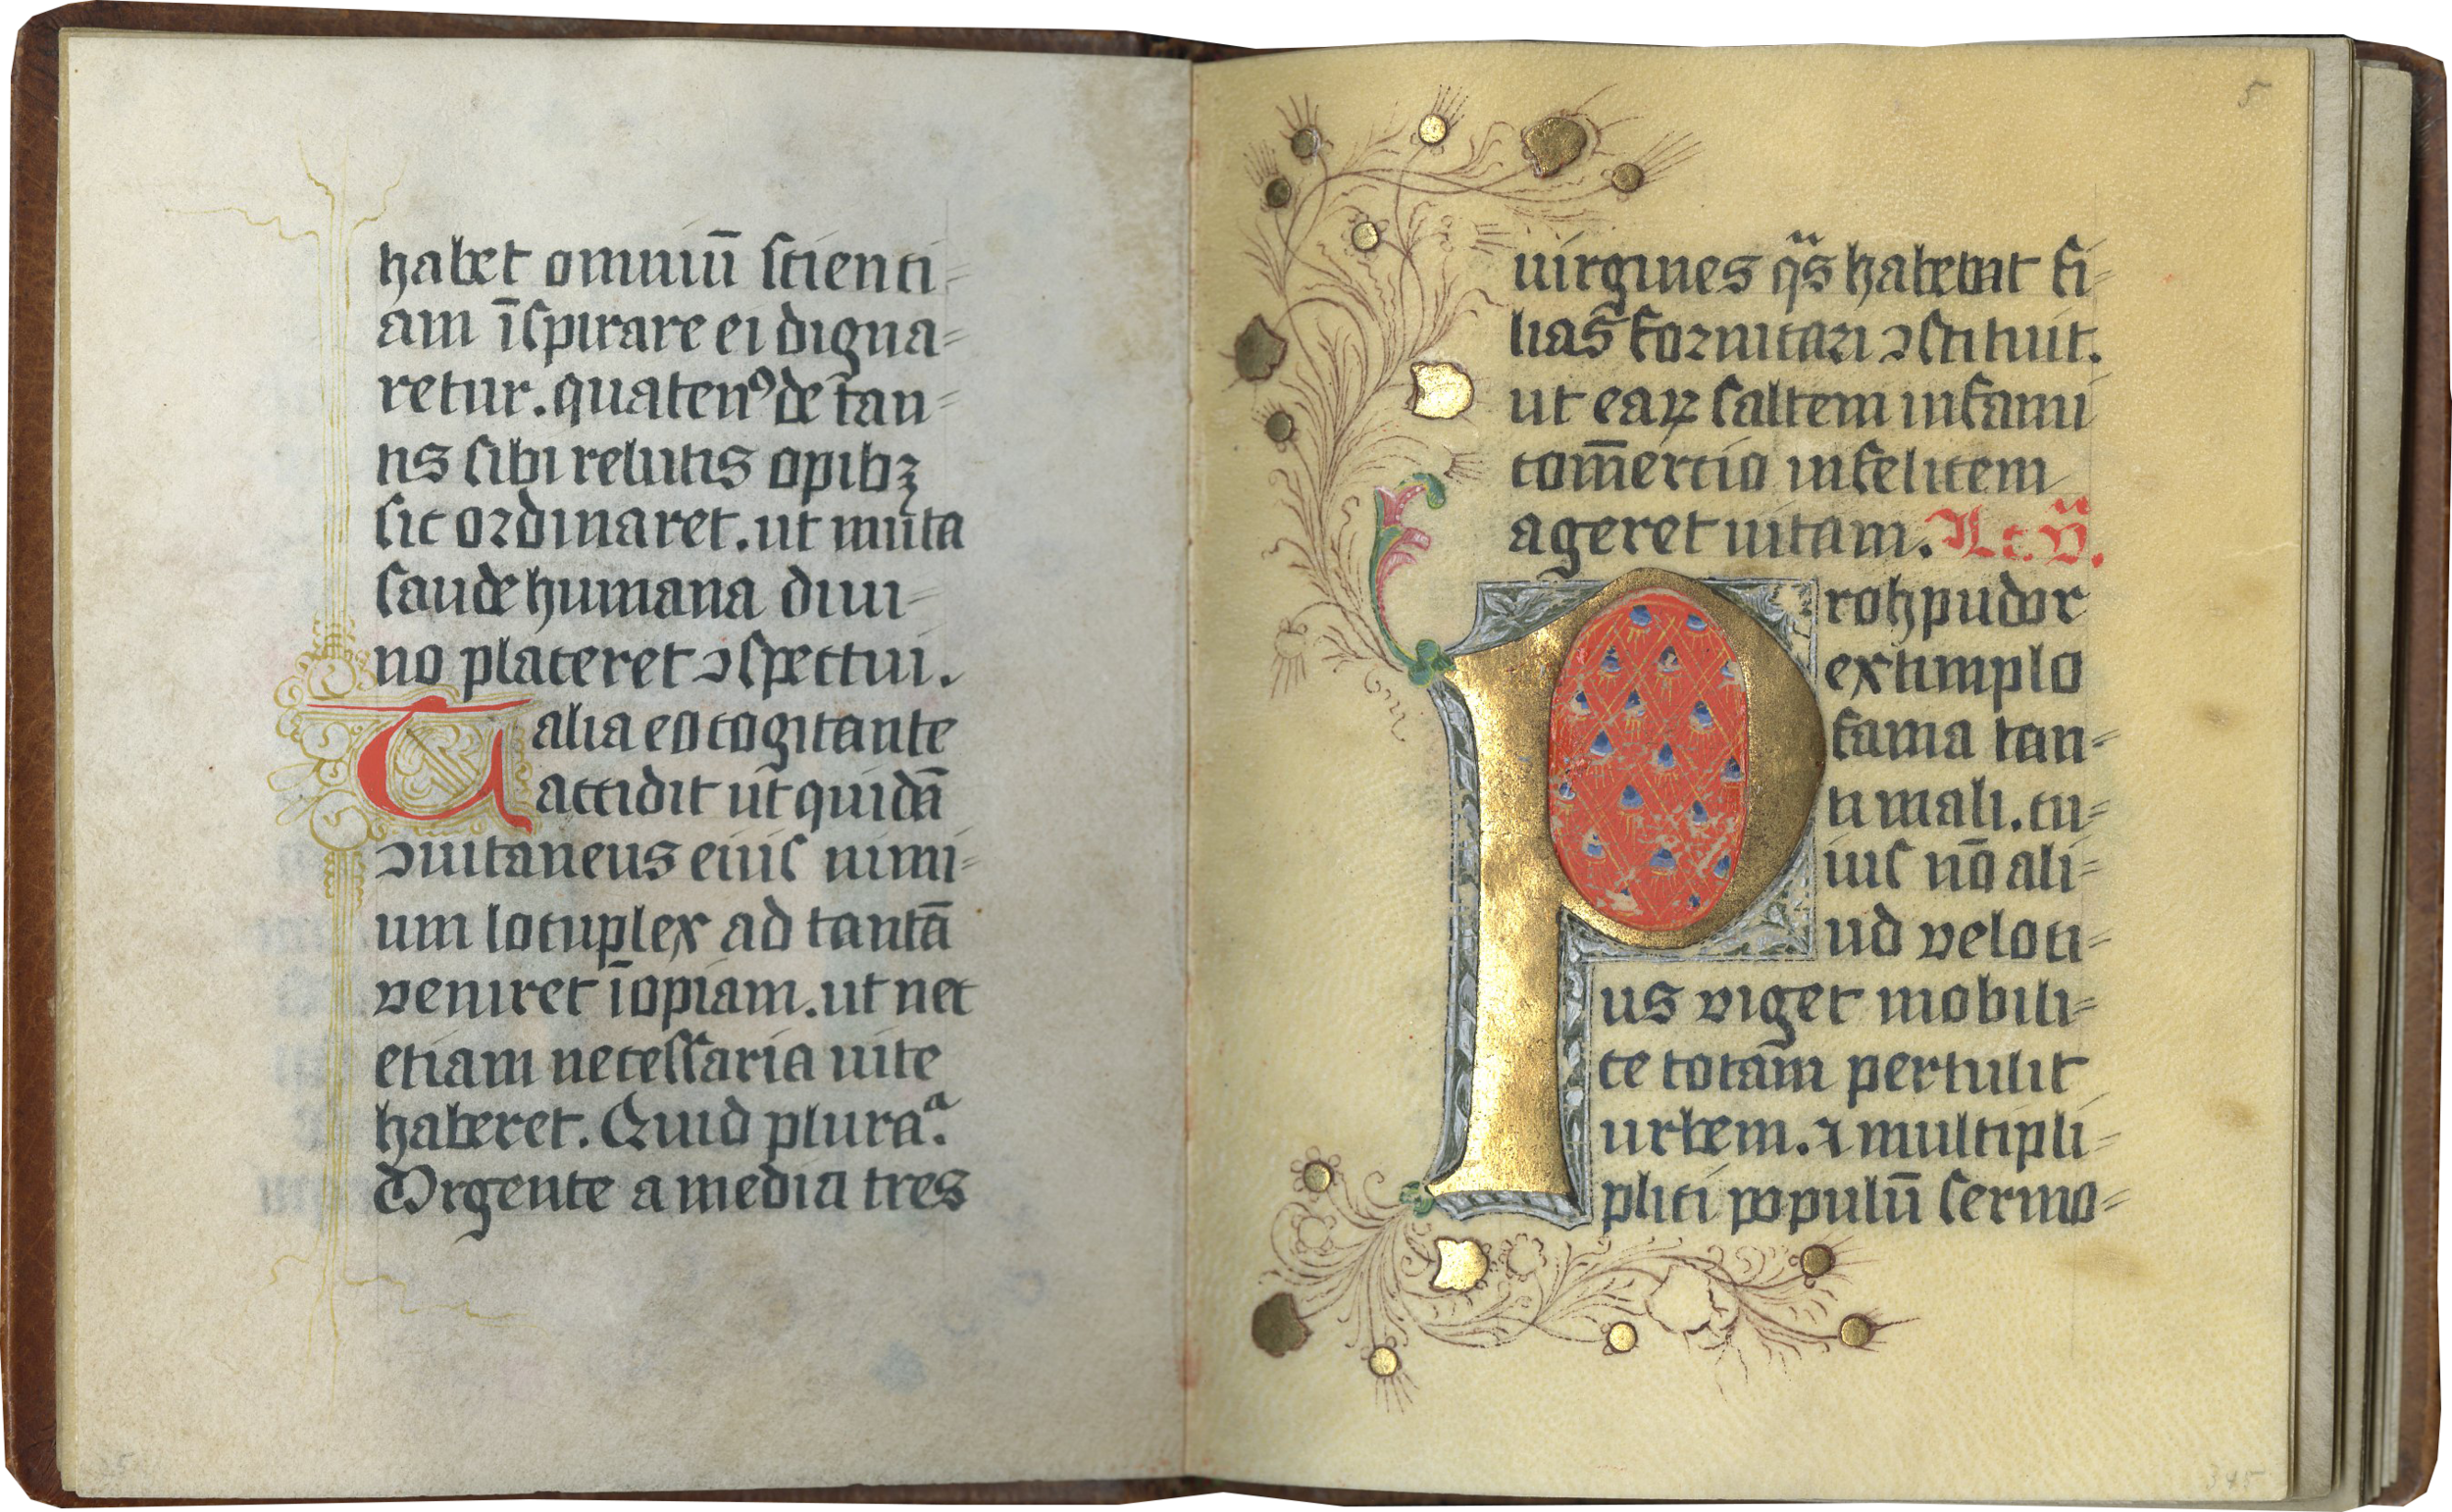 habet omniū scienti=
am īspirare ei digna=
retur. quatenꝰ de tan=
tis sibi relictis opibꝫ
sic ordinaret. ut muta
laude humana diui=
no placeret ↄspectui.
Talia eo cogitante
accidit ut quidā
ↄuicaneus eius nimi=
um locuplex ad tantā
veniret īopiam. ut nec
etiam necessaria uite
haberet. Quid plura.
Urgente a media tres
5
uirgines qs habebat fi=
lias fornicari ↄstituit.
ut eaꝝ saltem infami
com̄ercio infelicem
ageret uitam. Lc. v.
Proh pudor
extimplo
fama tan=
ti mali. cu=
ius nō ali=
ud veloci=
us viget mobili=
te totam pertulit
urbem. ⁊ multipli=
plici populū sermo=
345